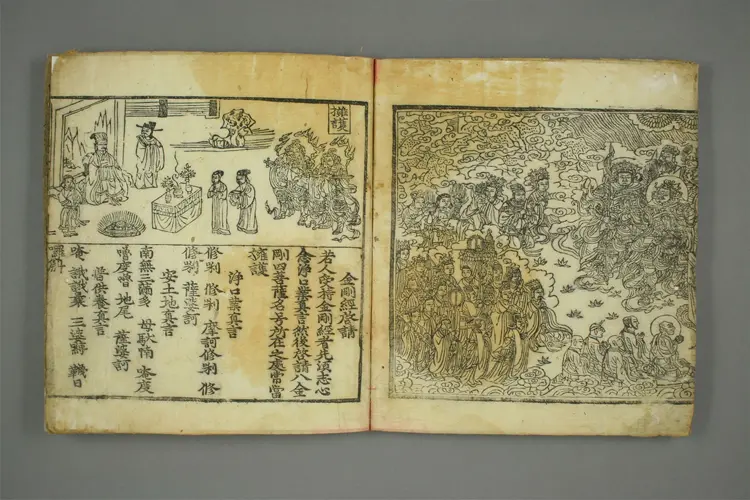 擁護
金剛經啓請
若人受持金剛經者先須志心
念淨口業真言然後啓請八金
剛四菩薩名号所在之處常當
擁護
淨口業真言
修唎 修唎 摩訶修唎 修
修唎 薩婆訶
安土地真言
南無三滿多 母馱喃 唵度
嚕度嚕 地尾 薩婆訶
普供養真言
唵 誐誐曩 三婆縛 韈日